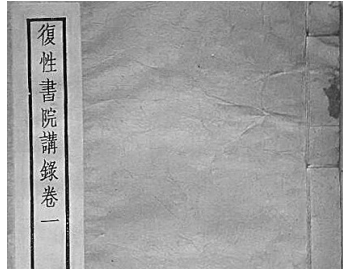 復性書院講錄卷一